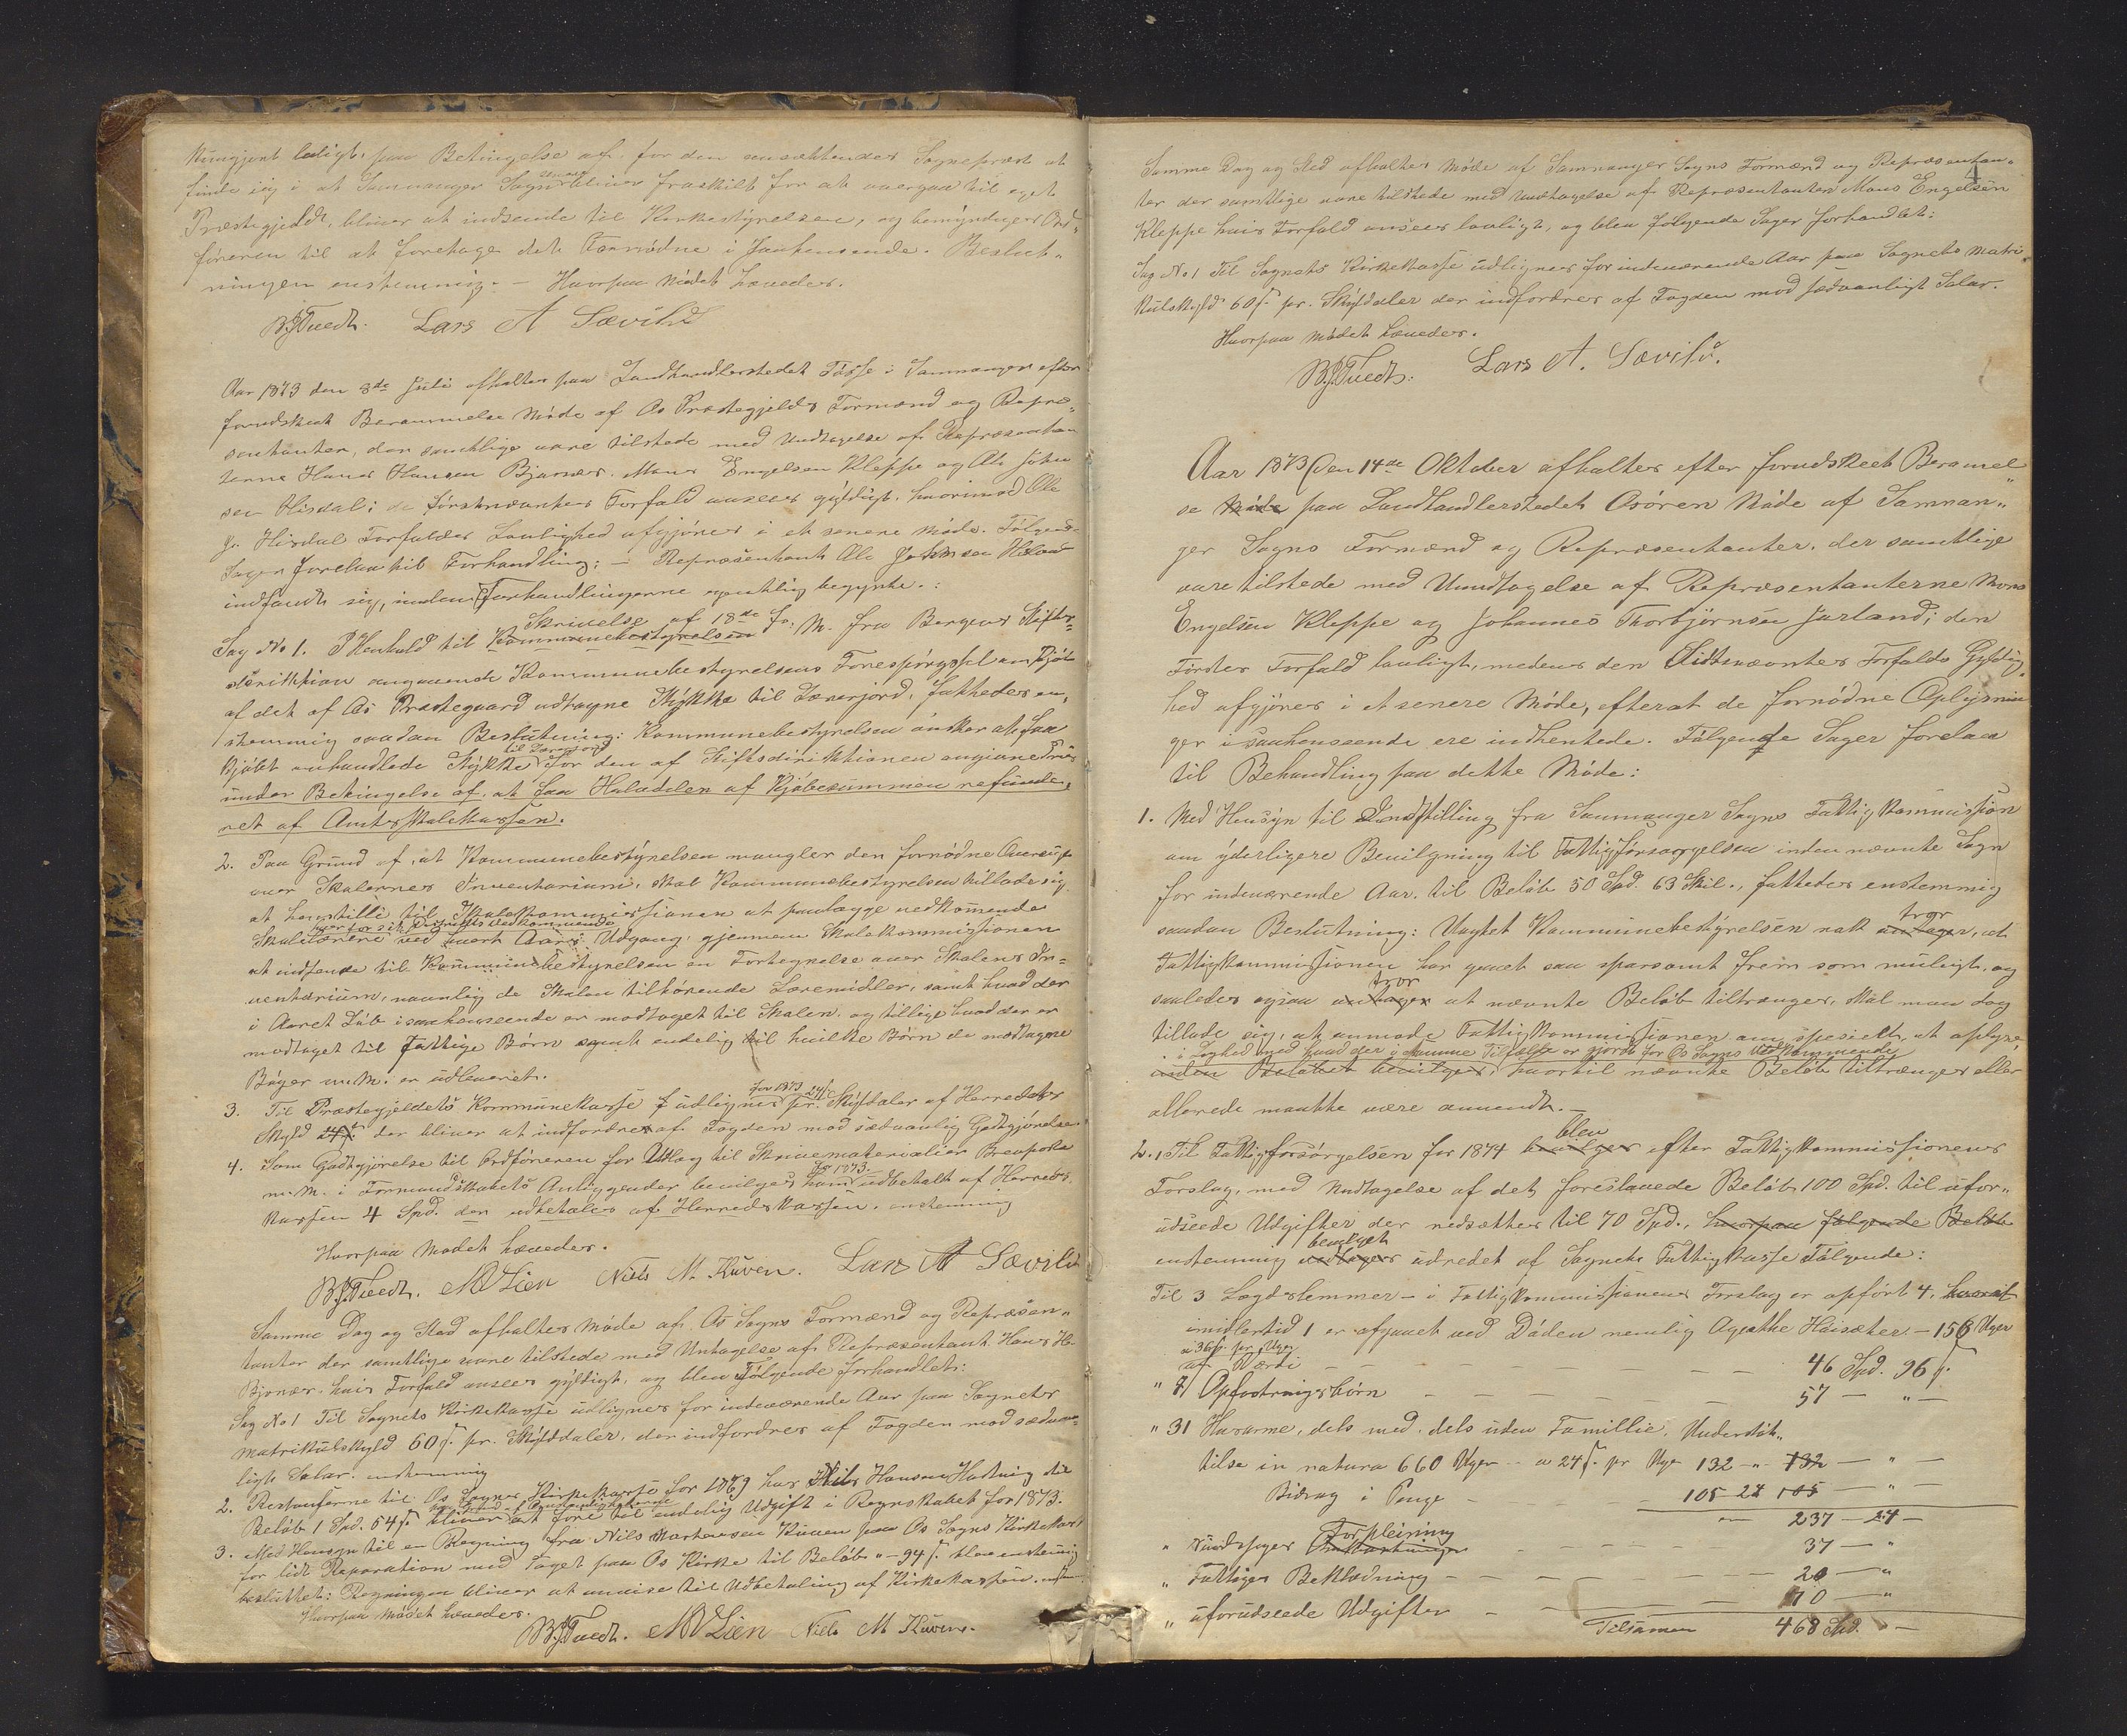 kungjort ledigt, paa Betingelse af, for den ansættendes Sogneprest at
finde sig i at Samnanger Sogn bliver fraskilt for at overgaa til eget
Præstegjeld, bliver at indsende til Kirkestyrelsen, og bemyndiges Ord-
føreren til at foretage det Fornødne i Saahenseende. Beslut-
ningen enstemmig. — Hvorpaa Mødet hævedes.
B.J.Tvedt. Lars A Sævild
Aar 1873 den 8de Juli afholtes paa Landhandlerstedet Tøsse i Samnanger efter
forudskeet Berammelse Møde af Os Præstegjelds Formænd og Repræ-
sentanter, der samtlige vare tilstede med Undtagelse af Repræsentan
terne Hans Hansen Bjørnær. Mons Engelsen Kleppe og Ole Johan
sen Hisdal; de førstnævntes Forfald ansees gyldigt, hvorimod Ole
J. Hisdal Forfaldes Lovlighed afgjøres i et senere Møde. Følgende
Sager forelaa til Forhandling: — Repræsentant Ole Johnsen Hisdal
indfandt sig, inden Forhandlingerne egentlig begyndte.:
Sag No 1. I Henhold til Kommunebestyrelsen Skrivelse af 18de f. M. fra Bergens Stifts-
direktion angaaende Kommunebestyrelsens Forespørgsel om Kjøb
af det af Os Præstegaard udtagne Stykke til Lærerjord, fattedes en-
stemmig saadan Beslutning: Kommunebestyrelsen ønsker at faa
kjøbt omhandlede Stykke til Lærerjord for den af Stiftsdirektionen angivne Priis
under Betingelse af, at faa Halvdelen af Kjøbesummen refunde-
ret af Amtsskolekassen.
2. Paa Grund af, at Kommunebestyrelsen mangler den fornødne Oversigt
over Skolernes Inventarium, skal Kommunebestyrelsen tillade sig
at henstille til Skolekommissionen at paalægge vedkommende
Skolelærere hver for sit Distrikts Vedkommende ved hvert Aars Udgang, gjennem Skolekommissionen
at indsende til Kommunebestyrelsen en Fortegnelse over Skolens In-
ventarium, navnlig de Skolen tilhørende Læremidler, samt hvad der
i Aaret Løb i saahenseende er modtaget til Skolen, og tillige hvad der er
modtaget til fattige Børn samt endelig til hvilke Børn de modtagne
Bøger m.M. er udleveret.
3. Til Præstegjeldets Kommunekasse udlignes for 1873 24 ß pr. Skylddaler af Herredets
Skyld 24 ß der bliver at indfordres af Fogden mod sædvanlig Godtgjørelse.
4. Som Godtgjørelse til Ordføreren for Udlæg til Skrivematerialier Brevporto
m.M. i Formandskabets Anliggender bevilges ham for 1873 udbetalt af Herreds-
kassen 4 Spd. der udbetales af Herredskassen. enstemmig
Hvorpaa Mødet hævedes.
B.J.Tvedt. M O Lien Niels M. Kuven. Lars A Sævild
Samme Dag og Sted afholtes Møde af Os Sogns Formænd og Repræsen-
tanter der samtlige vare tilstede med Untagelse af Repræsentant Hans H.
Bjørnær, hvis Forfald ansees gyldigt, og blev Følgende forhandlet:
Sag No 1 Til Sognets Kirkekasse udlignes for indeværende Aar paa Sognets
Matrikulskyld 60 ß. pr. Skylddaler, der indfordres af Fogden mod sædvan-
ligt Salar. enstemmig
2. Restanserne til Os Sogns Kirkekasse for 1869 hos Nils Hansen Hatning til
Beløb 1 Spd. 54 ß bliver at føre til endelig Udgift i Regnskabet for 1873.
3. Med Hensyn til en Regning fra Nils Mortensen Kuven paa Os Sogns Kirkekasse
for lidt Reparation ved Taget paa Os Kirke til Beløb „ — 94 ß. blev enstemmig
besluttet: Regningen bliver at anvise til Udbetaling af Kirkekassen.
Hvorpaa Mødet hævedes.
B.J.Tvedt. M O Lien Niels M Kuven.
4
Samme Dag og Sted afholtes Møde af Samnanger Sogns Formænd og Repræsentan-
ter der samtlige vare tilstede med Undtagelse af Repræsentanten Mons Engelsen
Kleppe hvis Forfald ansees lovligt, og blev følgende Sager forhandlet:
Sag No 1 Til Sognets Kirkekasse udlignes for indeværende Aar paa Sognets Matri-
kulskyld 60 ß. pr. Skylddaler der indfordres af Fogden mod sædvanligt Salar.
Hvorpaa Mødet hævedes.
B.J.Tvedt. Lars A. Sævild.
Aar 1873 den 14de Oktober afholtes efter forudskeet Beramel
se Møde paa Landhandlerstedet Osøren Møde af Samnan-
ger Sogns Formænd og Repræsentanter, der samtlige
vare tilstede med Unndtagelse af Repræsentanterne Mons
Engelsen Kleppe og Johannes Thorbjørnsen Jarland; den
Førstes Forfald lovligt, medens den Sidstnævntes Forfalds Gyldig-
hed afgjøres i et senere Møde, efterat de fornødne Oplysnin
ger i saahenseende ere indhentede. Følgende Sager forelaa
til Behandling paa dette Møde:
1. Med Hensyn til Indstilling fra Samnanger Sogns Fattigkommission
om yderligere Bevilgning til Fattigforsørgelsen inden nævnte Sogn
for indeværende Aar, til Beløb 50 Spd. 63 Skil., fattedes enstemmig
saadan Beslutning: Uagtet Kommunebestyrelsen nok antager, tror at
Fattigkommissionen har gaaet saa sparsomt frem som muligt, og
saaledes ogsaa antager tror at nævnte Beløb tiltrænges, skal man dog
tillade sig, at anmode Fattigkommissionen om spesielt at oplyse,
i Lighed med hvad der i samme Tilfælde er gjort for Os Sogns Vedkommende
inden Beløbet bevilges, hvortil nævnte Beløb tiltrænges eller
allerede maatte være anvendt. —
2. Til Fattigforsørgelsen for 1874 bevilges blev efter Fattigkommissionens
Forslag, med Undtagelse af det foreslaaede Beløb 100 Spd. til ufor-
udseede Udgifter der nedsættes til 70 Spd., hvorpaa følgende Beløb
enstemmig vedtages bevilget udredet af Sognets Fattigkasse Følgende:
Til 3 Lægdslemmer — i Fattigkommissionens Forslag er opført 4, hvoraf
imidlertid 1 er afgaaet ved Døden nemlig Agathe Huisæter — 156 Uger
a 36 ß. pr. Uge
af Værdi — — — 46 Spd. 96 ß.
„ 7 Opfostringsbørn — — — 57 — „ —
„ 31 Husarme, dels med, dels uden Famillie. Understøt-
telse in natura 660 Uger — a 24 ß. pr Uge 132 — „ — 132 — „ —
Bidrag i Penge — 105 24 105 — „ —
237 — 24 —
„ Sindssyges Forpleining — — — 37 — „
„ Fattiges Beklædning — — — 20 — „
„ uforudseede Udgifter — — — 70 — „
Tilsamen 468 Spd. „ —